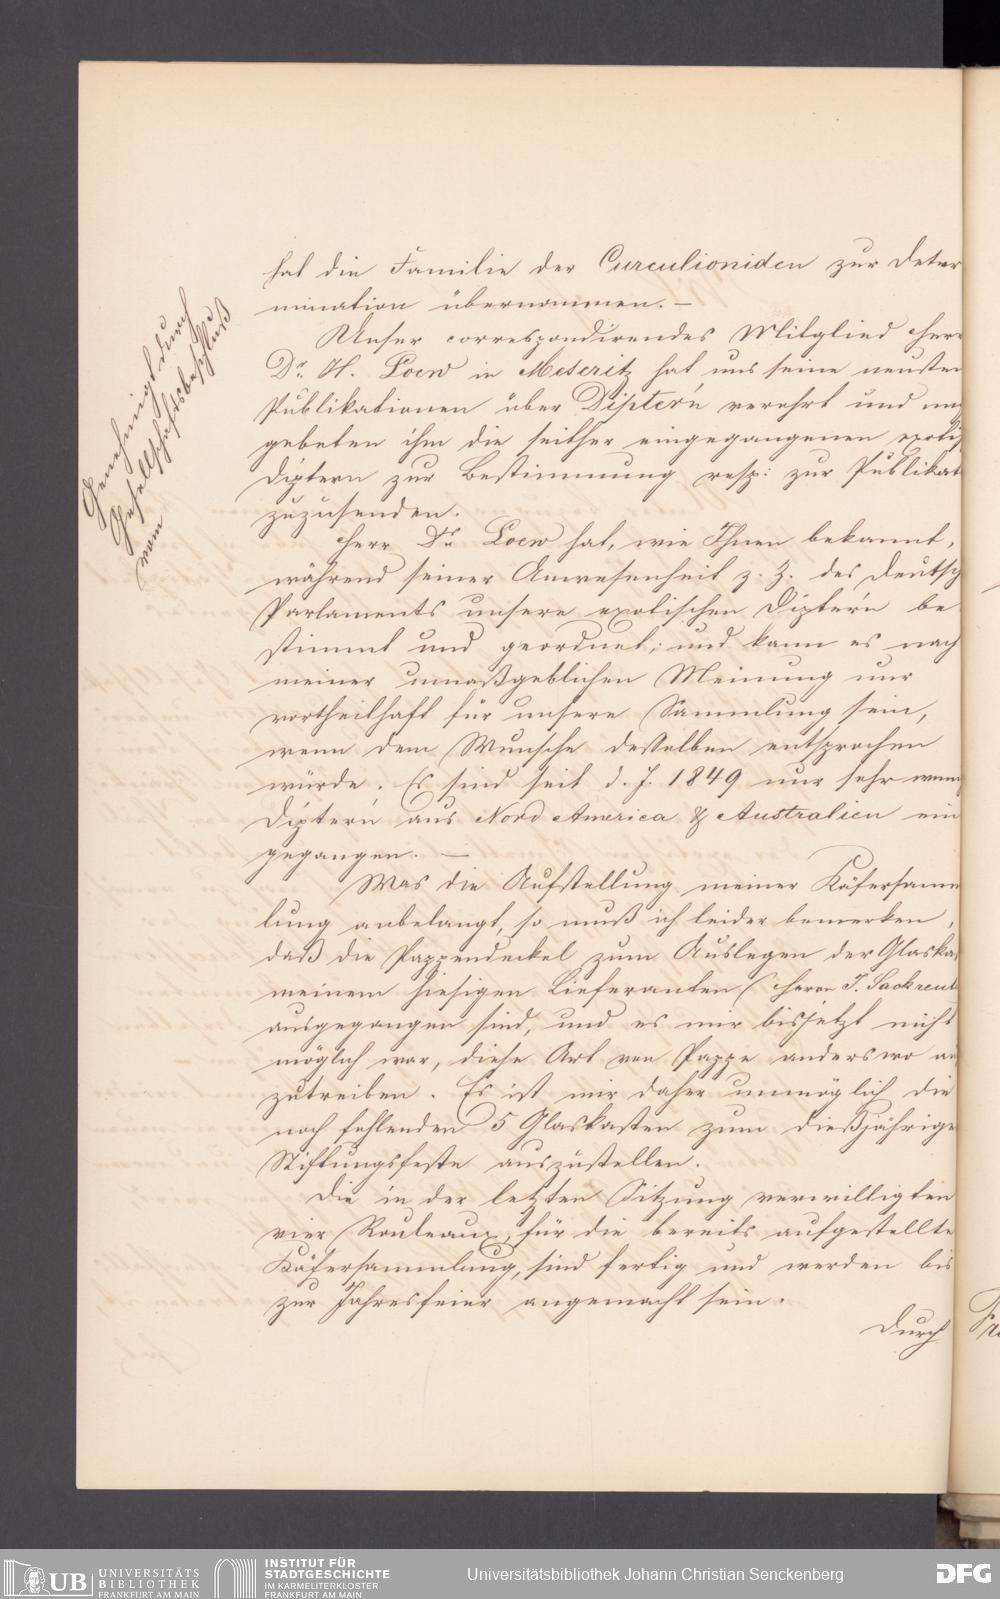 hat die Familie der Curculioniden zur Deter
mination übernommen. —
Unser correspondirendes Mitglied Herr
Dr. H. Loew in Meseritz hat uns seine neusten
Publikationen über Diptern verehrt und
gebeten ihm die seither eingegangenen exotisch
Diptern zur Bestimmung resp: zur Publikat
zuzusenden.
Herr Dr. Loew hat, wie Ihnen bekannt,
während seiner Anwesenheit z. Z. des Deutsch
Parlaments unsere exotischen Diptern be
stimmt und geordnet; und kann es nach
meiner unmaßgeblichen Meinung nur
vortheilhaft für unsere Sammlung sein,
wenn dem Wunsche desselben entsprochen
würde. Es sind seit d. J. 1849 nur sehr wenig
Diptern aus Nord America & Australien ein
gegangen. —
Was die Aufstellung meiner Käfersamm
lung anbelangt, so muß ich leider bemerken,
daß die Pappendeckel zum Auslegen der Glaska
meinem hiesigen Lieferanten (Herrn J. Sackreut
ausgegangen sind, und es mir bisjetzt nicht
möglich war, diese Art von Pappe anderswo auf
zutreiben. Es ist mir daher unmöglich die
noch fehlenden 5 Glaskasten zum dießjährige
Stiftungsfeste auszustellen.
Die in der letzten Sitzung verwilligten
vier Rouleaux, für die bereits aufgestellte
Käfersammlung, sind fertig und werden bis
zur Jahresfeier angemacht sein.
Durch
Genehmigt durch
Gesellschaftsbeschluß
vom
UB UNIVERSITÄTS
BIBLIOTHEK
FRANKFURT AM MAIN
INSTITUT FÜR
STADTGESCHICHTE
IM KARMELITERKLOSTER
FRANKFURT AM MAIN
Universitätsbibliothek Johann Christian Senckenberg
DFG